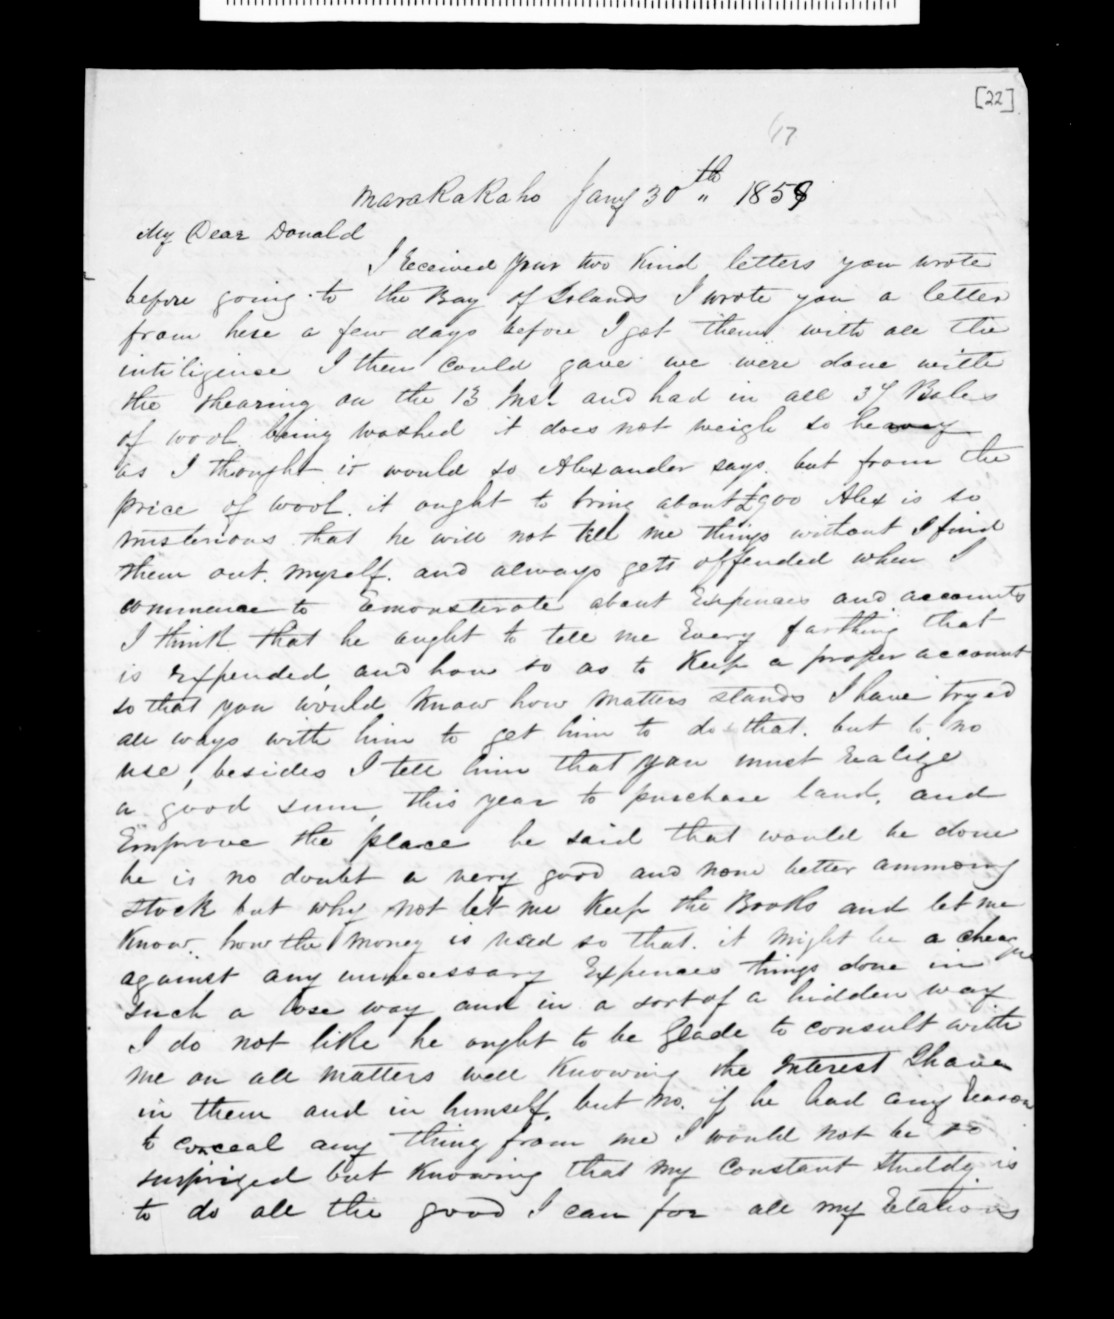 [22]
17
Marakakaho Jany 30th 1858
My Dear Donald
I Received your two Kind letters you wrote
before going to the Bay of Islands I wrote you a letter
from here a few days before I got them with all the
intiligense I then could gave we were done with
the shearing on the 13 Inst. and had in all 37 Bales
of wool being washed it does not weigh so heavy
as I thought it would so Alexander says. but from the
price of wool. it ought to bring about £900 Alex is so
misterious that he will not tell me things without I find
them out. myself. and always gets offended when I
commence to Emonstrate about Expences and accounts
I think that he aught to tell me Every farthing that
is Expended, and how so as to Keep a proper account
so that you would know how matters stands I have tryed
all ways with him to get him to do that. but to no
use, besides I tell him that you must Realize
a good sum, this year to purchase land, and
Emprove the place he said that would be done
he is no doubt a very good and none better ammong
stock but why not let me Keep the Books and let me
Know how the money is used so that. it might be a cheaque
against any unnecessary Expences things done in
such a lose way and in a sort of a hidden way
I do not like he ought to be Glade to consult with
me on all matters well Knowing the Interest I have
in them and in himself, but no. if he had any Reason
to conceal any thing from me I would not be so
surprized but Knowing that my constant Studdy is
to do all the good I can for all my Relations